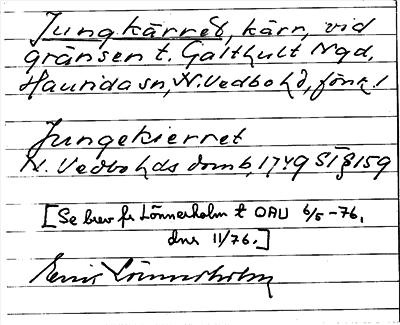 Jungkärret, kärr, vid
gränsen t. Galthult Ngd,
Haurida sn, N. Vedbo hd, Jönk. l
Jungekierret
N. Vedbo hds domb, 1749 ST § 159
[Se brev fr Lönnerholm t OAU 6/5-76,
dnr 11/76.]
Lönnerholm